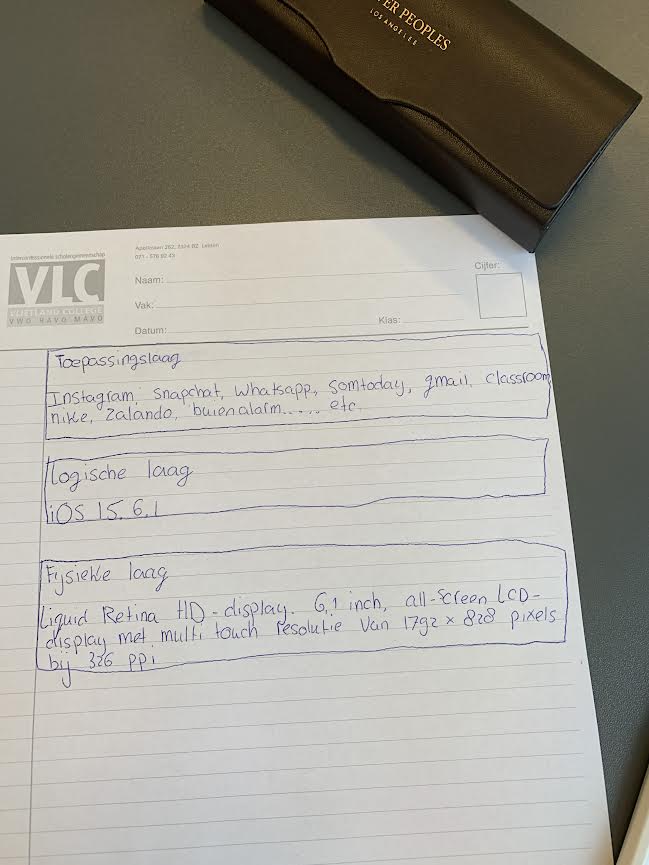 ER PEOPLES
LOS ANGELES
Interconfessionele scholengemeenschap
VLC
VLIETLAND COLLEGE
VWO HAVO MAVO
Apollolaan 262, 2324 BZ Leiden
071 - 576 92 43
Naam:
Vak:
Datum:
Klas:
Cijfer:
Toepassingslaag
Instagram, snapchat, whatsapp, somtoday, gmail, classroom
nike, Zalando, buienalarm..... etc.
Logische laag
iOS 15.6.1
Fysieke laag
Liquid Retina HD-display. 6,1 inch, all-screen LCD-
display met multi touch resolutie van 1792 x 828 pixels
bij 326 ppi